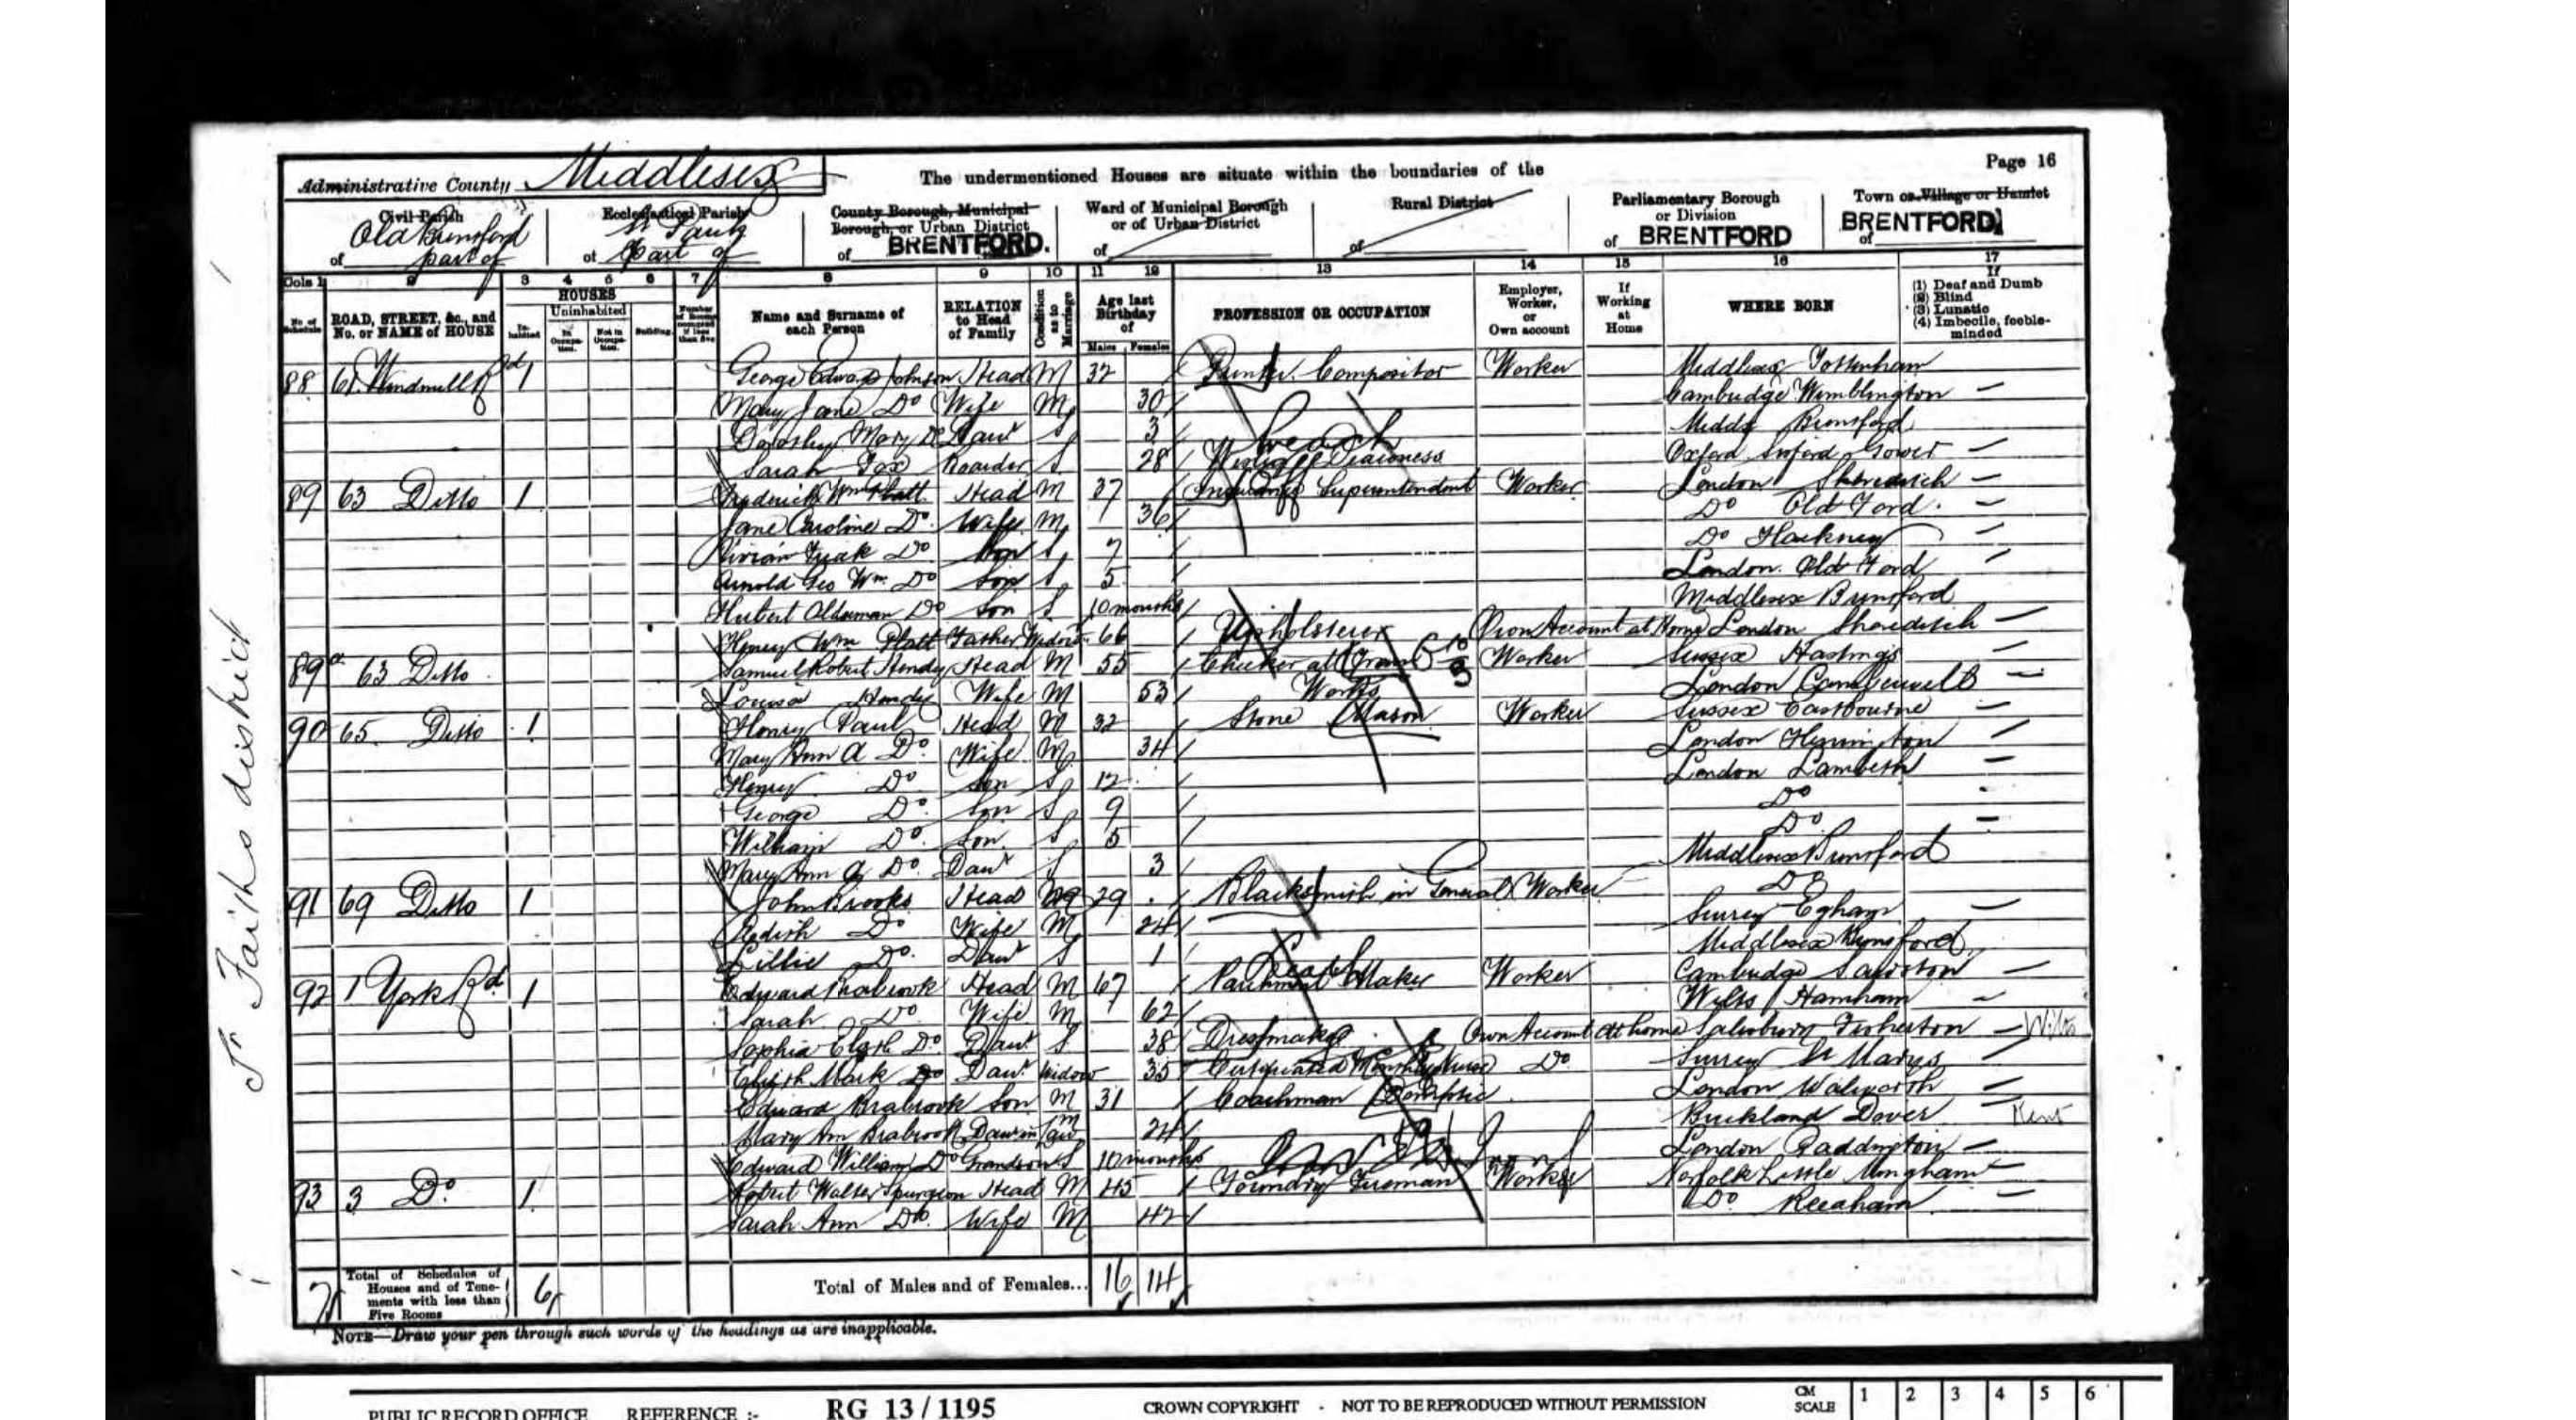 Page 16
Administrative County Middlesex
The undermentioned Houses are situate within the boundaries of the
Civil Parish of Old Brentford part of
Ecclesiastical Parish of St Pauls Part of
County Borough, Municipal Borough, or Urban District of BRENTFORD.
Ward of Municipal Borough or of Urban District of
Rural District of
Parliamentary Borough or Division of BRENTFORD
Town or Village or Hamlet of BRENTFORD
Cols 1 2 3 4 5 6 7 8 9 10 11 12 13 14 15 16 17
No. of Schedule
ROAD, STREET, &c., and No. or NAME of HOUSE
HOUSES
Inhabited
Uninhabited
In Occupation.
Not in Occupation.
Building.
Number of Rooms occupied if less than five
Name and Surname of each Person
RELATION to Head of Family
Condition as to Marriage
Age last Birthday of
Males Females
PROFESSION OR OCCUPATION
Employer, Worker, or Own account
If Working at Home
WHERE BORN
If
(1) Deaf and Dumb
(2) Blind
(3) Lunatic
(4) Imbecile, feeble-minded
88 61 Windmill Rd 1 George Edward Johnson Head M 32 Printer Compositor Worker Middlesex Tottenham
Mary Jane Do Wife M 30 Cambridge Wimblington
Dorothy Mary Do Daur S 3 Middx Brentford
Sarah Fox Boarder S 28 Deaconess Oxford
89 63 Ditto 1 Frederick Wm Platt Head M 37 Insurance Superintendent Worker London Shoreditch
Jane Caroline Do Wife M 36 Do Old Ford
Vivian Do Son S 7 Do Hackney
Arnold Geo Wm Do Son S 5 London Old Ford
Hubert Do Son S 10 months Middlesex Brentford
Henry Wm Platt Father Widower 66 Upholsterer Own Account at Home London Shoreditch
89a 63 Ditto Samuel Robert Hendy Head M 55 at Works Worker Sussex Hastings
Louisa Hendy Wife M 53 London Camberwell
90 65 Ditto 1 Henry Paul Head M 32 Stone Mason Worker Sussex Eastbourne
Mary Ann A Do Wife M 34 London
Henry Do Son S 12 London Lambeth
George Do Son S 9 Do
William Do Son S 5 Do
Mary Ann Do Daur S 3 Middlesex Brentford
91 69 Ditto 1 John Brooks Head M 29 Blacksmith in General Worker Do
Edith Do Wife M 24 Surrey Egham
Lillie Do Daur S 1 Middlesex Brentford
92 1 York Rd 1 Edward Brabrook Head M 67 Parchment Maker Worker Cambridge Sawston
Sarah Do Wife M 62 Wilts Harnham
Sophia Elizth Do Daur S 38 Dressmaker Own Account At home Salisbury Fisherton Wilts
Elizth Mark Do Daur Widow 35 Certificated Monthly Nurse Do Surrey St Marys
Edward Brabrook Son M 31 Coachman Domestic London Walworth
Mary Ann Brabrook Daur in law M 24 Buckland Dover Kent
Edward William Do Grandson S 10 months London Paddington
93 3 Do 1 Robert Walter Spurgeon Head M 45 Foundry Worker Norfolk Little
Sarah Ann Do Wife M 42 Do Reepham
7 Total of Schedules of Houses and of Tenements with less than Five Rooms 6
Total of Males and of Females... 16 14
NOTE—Draw your pen through such words of the headings as are inapplicable.
St Faiths district
PUBLIC RECORD OFFICE REFERENCE :- RG 13 / 1195 CROWN COPYRIGHT - NOT TO BE REPRODUCED WITHOUT PERMISSION CM SCALE 1 2 3 4 5 6